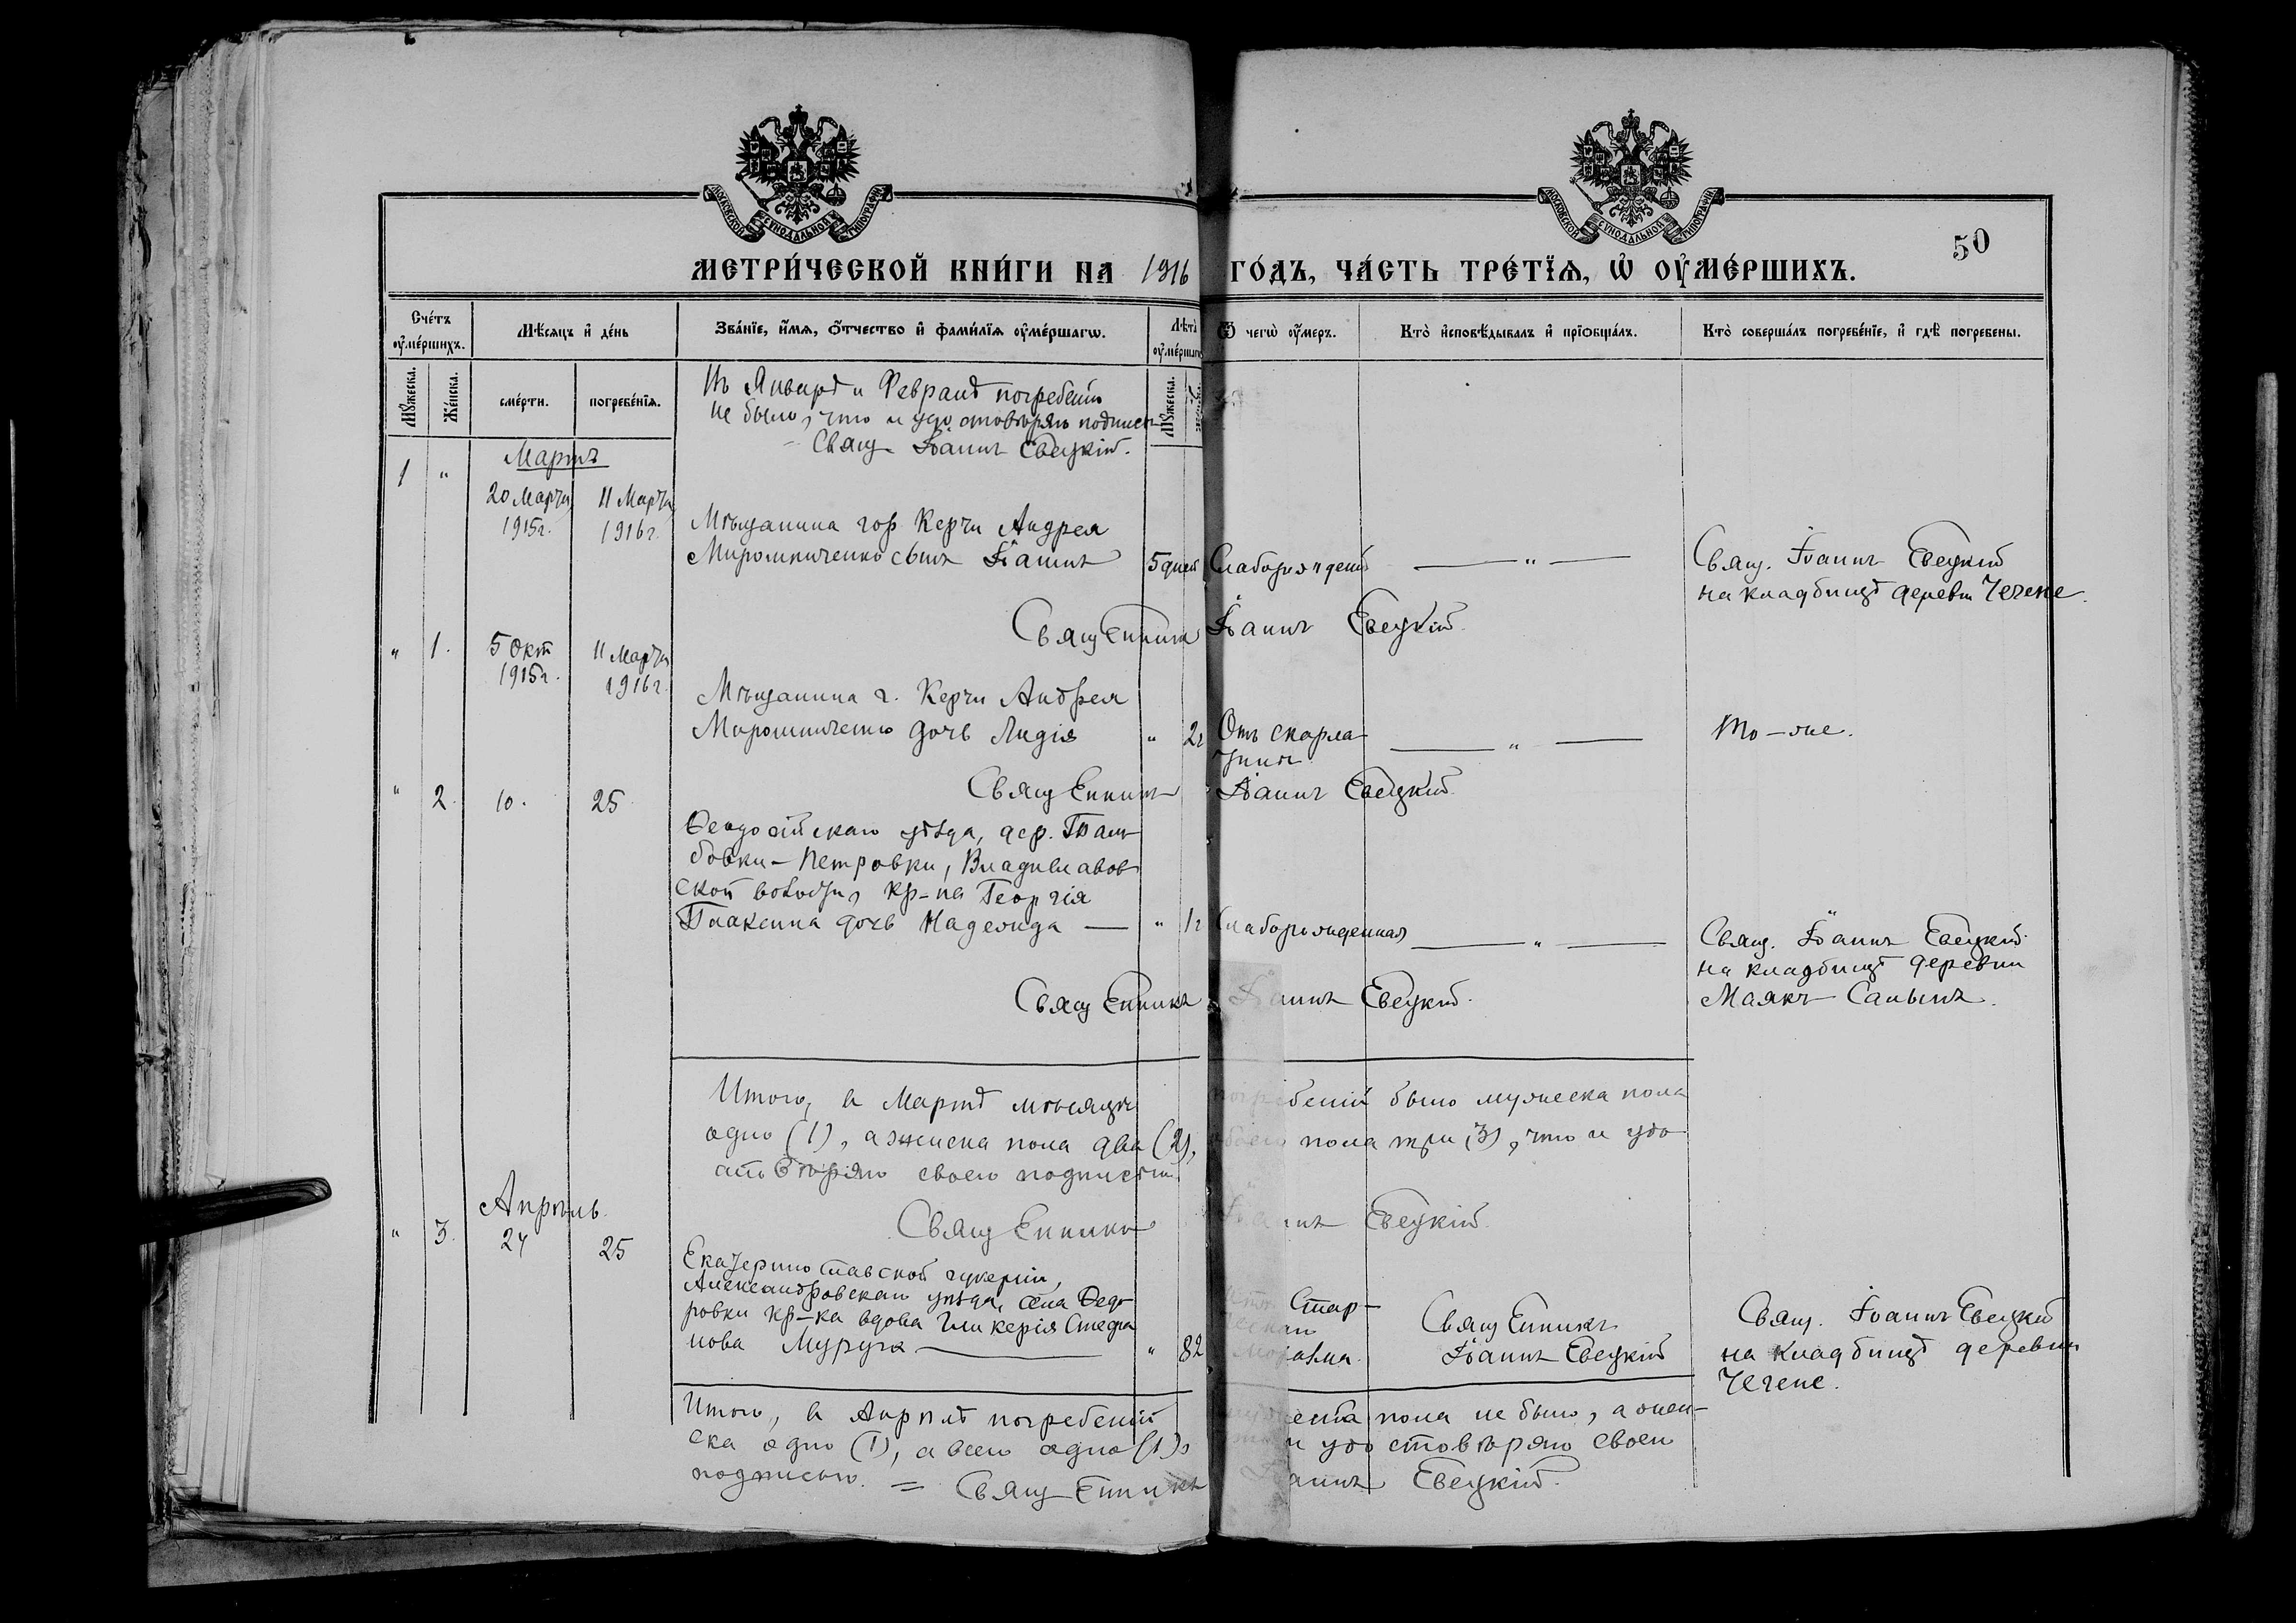 МОСКОВСКОЙ СУНОДАЛЬНОЙ ТИПОГРАФІИ
МОСКОВСКОЙ СУНОДАЛЬНОЙ ТИПОГРАФІИ
50
МЕТРИ́ЧЕСКОЙ КНИ́ГИ НА 1916 ГО́ДЪ, ЧА́СТЬ ТРЕ́ТЇѦ, Ѡ҆ ОУ҆МЕ́РШИХЪ.
Сче́тъ оу҆ме́ршихъ.
Мѣ́сяцъ и҆ де́нь
Зва́нїе, и҆́мѧ, ѻ҆́тчество и҆ фами́лїѧ оу҆ме́ршагѡ.
Лѣ́та оу҆ме́ршагѡ
Ѿ чегѡ̀ оу҆́меръ.
Кто̀ и҆сповѣ́дывалъ и҆ прїѻбща́лъ.
Кто̀ соверша́лъ погребе́нїе, и҆ гдѣ̀ погребены.
Мꙋ́жеска.
Же́нска.
сме́рти.
погребе́нїѧ.
Мꙋ́жеска.
Въ Январѣ и Февралѣ погребеній
не было, что и удостовѣряю подписью
Свящ. Іоаннъ Евецкій.
Мартъ
1 "
20 Марта 1915г.
11 Марта 1916г.
Мѣщанина гор. Керчи Андрея
Мирошниченко сынъ Іоаннъ
5 дней
Слаборожденій
— " —
Свящ. Іоаннъ Евецкій
на кладбищѣ деревни Чегене.
Священникъ Іоаннъ Евецкій.
" 1.
5 Окт 1915г.
11 Марта 1916г.
Мѣщанина г. Керчи Андрея
Мирошниченко дочь Лидія
" 2г
Отъ скарла-
тины
— " —
То-же.
Священникъ Іоаннъ Евецкій
" 2.
10.
25
Ѳеодосійскаго уѣзда, дер. Там-
бовки-Петровки, Владиславов
ской волости, кр-на Георгія
Плаксина дочь Надежда — " 1г
Слаборожденная
— " —
Свящ. Іоаннъ Евецкій
на кладбищѣ деревни
Маякъ-Салынъ.
Священникъ Іоаннъ Евецкій.
Итого, въ Мартѣ мѣсяцѣ погребеній было мужеска пола
одно (1), а женска пола два (2), обоего пола три (3), что и удо
стовѣряю своею подписью.
Священникъ Іоаннъ Евецкій.
Апрѣль.
" 3.
24
25
Екатеринославской губерніи,
Александровскаго уѣзда, села Ѳедо
ровки кр-ка вдова Гликерія Стефа
нова Муруга — " 82
Отъ Стар-
ческаго
маразма.
Священникъ
Іоаннъ Евецкій
Свящ. Іоаннъ Евецкій
на кладбищѣ деревни
Чегене.
Итого, въ Апрѣлѣ погребеній мужеска пола не было, а жен-
ска одно (1), а всего одно (1), что и удостовѣряю своею
подписью. = Священникъ Іоаннъ Евецкій.